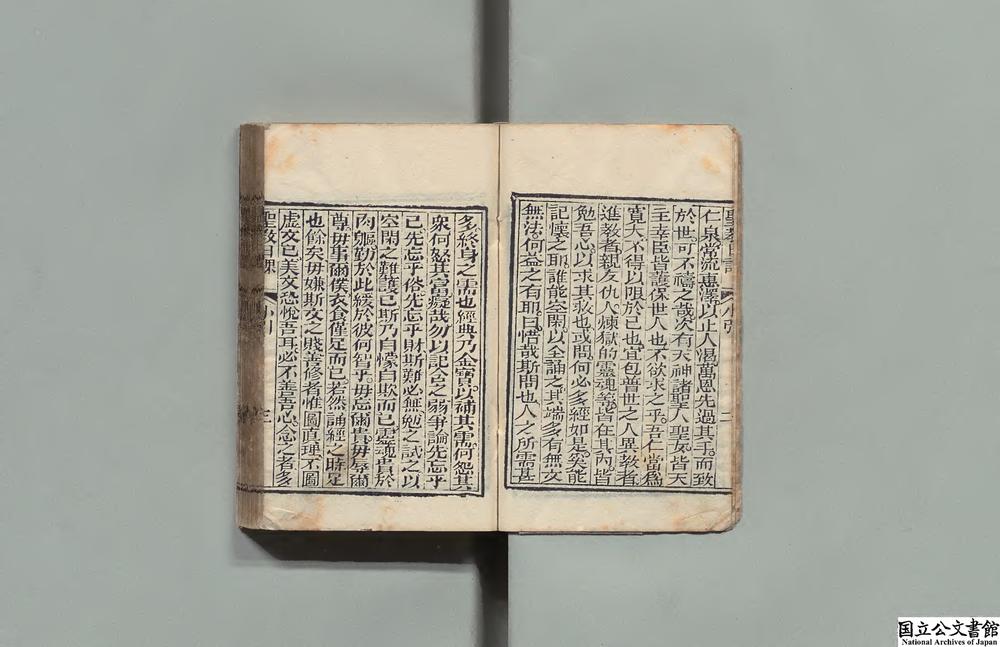 聖教日課 小引 二
仁泉常流惠澤以止人渴萬恩先過其手而致
於世。可不禱之哉次有天神諸聖人聖女皆天
主幸臣皆護保世人也不欲求之乎。吾仁當爲
寬大不得以限於已也宜包普世之人異教者
進教者親友仇人煉獄的靈魂等皆在其內皆
勉吾心以求其救也或問何必多經如是矣能
記懷之耶誰能空閑以全誦之其端多有無文
無法。何益之有耶。曰惜哉斯問也人之所需甚
多終身之需也經典乃金寶以補其需。何怨其
衆何怒其富癡哉勿以記含之弱爭論先忘乎
已先忘乎俗先忘乎財斯難必無勉之試之以
空閑之難護已斯乃自懞自欺而已靈魂貴於
肉軀勤於此緩於彼何智乎。毋忘爾貴。毋辱爾
尊毋事爾僕衣食僅足而已若然誦經之時足
也餘矣毋嫌斯文之賤善修者惟圖直理不圖
虛文已美文恐悅吾耳必不善吾心念之者多
聖教日課 小引 三
国立公文書館
National Archives of Japan